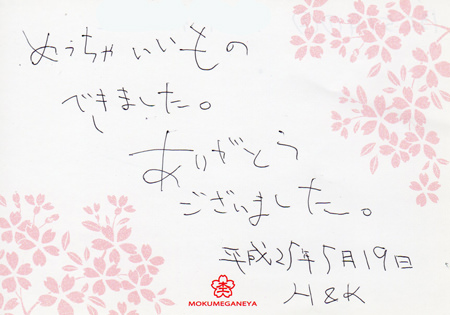 めっちゃいいもの
できました。
ありがとう
ございました。
平成25年5月19日
H&K
杢
MOKUMEGANEYA